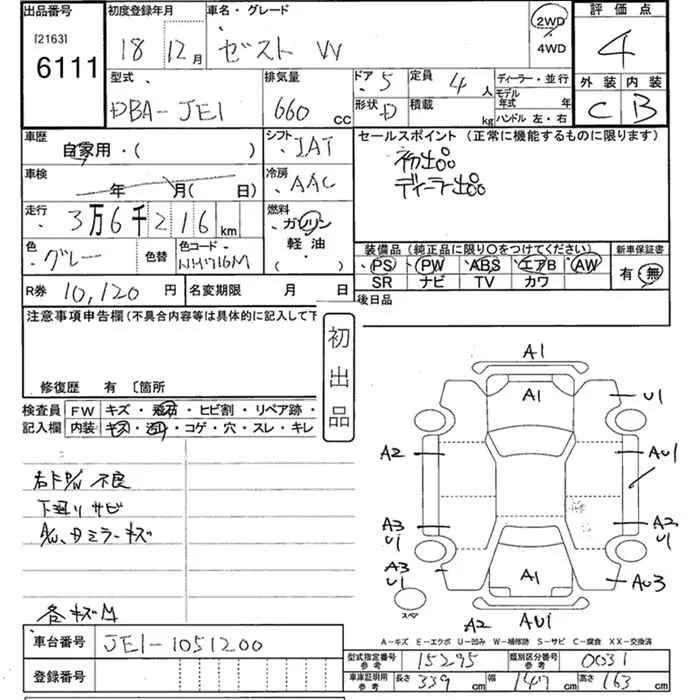 出品番号 初度登録年月 車名・グレード 2WD 評価点
[2163] 18 12月 ゼスト W 4WD 4
6111
型式 排気量 ドア 5 定員 4人 ディーラー・並行 外装 内装
DBA-JE1 660 CC 形状 D 積載 kg モデル年式 年 C B
ハンドル 左・右
車歴 シフト セールスポイント(正常に機能するものに限ります)
自家用・( ) IAT 初出品
車検 冷房 ディーラー出品
年 月( 日) AAC
走行 燃料
3万6千216km ガソリン
軽油
( )
色 色替 色コード 装備品(純正品に限り○をつけてください) 新車保証書
グレー NH716M PS PW ABS エアB AW 有・無
SR ナビ TV カワ
R券 10,120円 名変期限 月 日 後日品
注意事項申告欄(不具合内容等は具体的に記入して下
初出品
修復歴 有 〔箇所
検査員 FW キズ・飛石・ヒビ割・リペア跡・
記入欄 内装 キズ・汚れ・コゲ・穴・スレ・キレ
A1
A1 U1
A2 AU1
A3 A2
U1 U1
A3
U1 A1 AU3
スペア A2 AU1
右FP/W 不良
下廻りサビ
A/W、ミラーキズ
各キズ
A-キズ E-エクボ U-凹み W-補修跡 S-サビ C-腐食 XX-交換済
車台番号 JE1-1051200
型式指定番号 参考 15295 類別区分番号 参考 0031
登録番号 車庫証明用 参考 長さ 339cm 幅 147cm 高さ 163cm